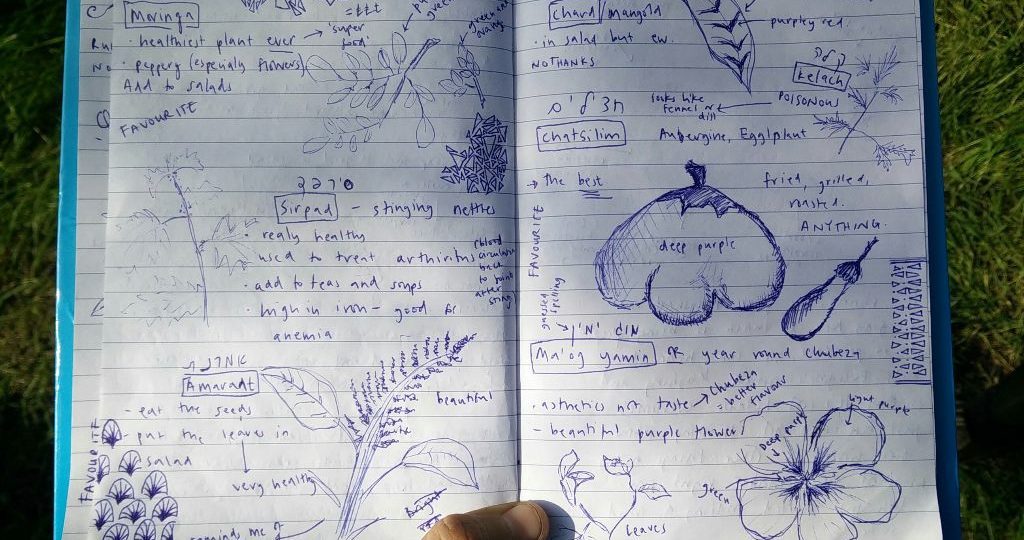 Moringa
= ttt
· healthiest plant ever → 'super food'
· peppery (especialy flowers)
Add to salads
FAVOURITE
סרפד
Sirpad - stinging nettles
· realy healthy
· used to treat arthiritis
blood
back
to point
after
sting
· add to teas and soups
· high in iron - good for
anemia
Amarant
- eat the seeds
beautiful
- put the leaves in
salad
very healthy
FAVOURITE
reminds me of
Bright
chard/mangold
purpley red.
· in salad but ew.
NO THANKS
kelach
POISONOUS
looks like
fennel or
dill
chatsilim
Aubergine, Eggplant
→ The best
fried, grilled,
roasted.
ANYTHING.
deep purple
FAVOURITE
guessed
spelling
Ma'og yamin OR year round chubeza
· asthetics not taste → Chubeza
= better
flavour
- beautiful purple flower
Deep purple
light purple
green
leaves